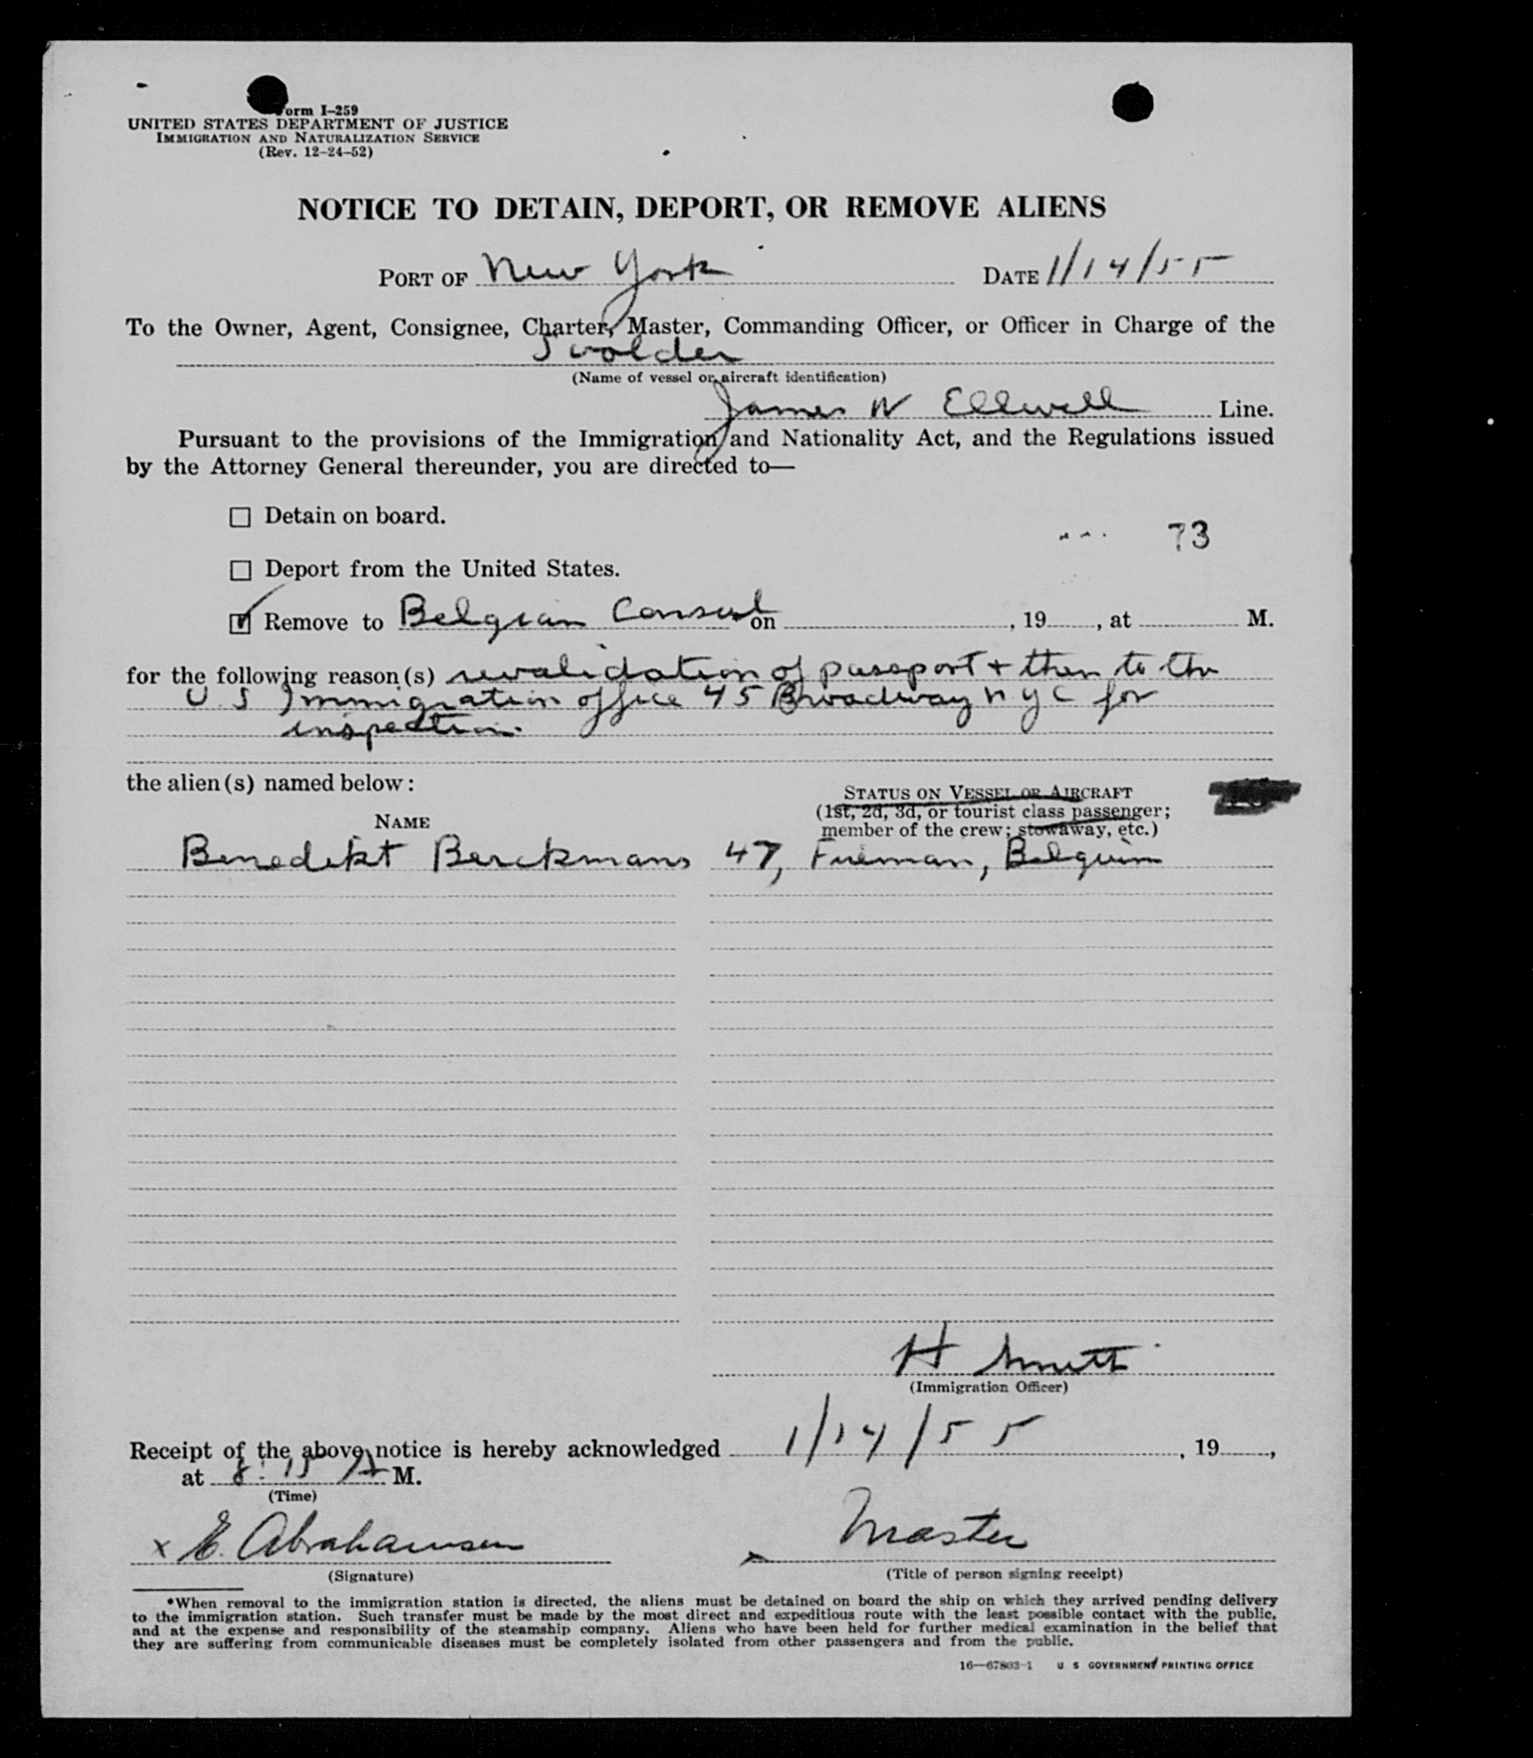 Form I-259
UNITED STATES DEPARTMENT OF JUSTICE
IMMIGRATION AND NATURALIZATION SERVICE
(Rev. 12-24-52)
NOTICE TO DETAIN, DEPORT, OR REMOVE ALIENS
PORT OF New York DATE 1/14/55
To the Owner, Agent, Consignee, Charter, Master, Commanding Officer, or Officer in Charge of the
(Name of vessel or aircraft identification)
James W Ellwell Line.
Pursuant to the provisions of the Immigration and Nationality Act, and the Regulations issued
by the Attorney General thereunder, you are directed to—
Detain on board.
73
Deport from the United States.
Remove to Belgian Consul on , 19 , at M.
for the following reason(s) revalidation of passport + then to the
U S Immigration office 45 Broadway N Y C for
inspection.
the alien(s) named below:
STATUS ON VESSEL OR AIRCRAFT
(1st, 2d, 3d, or tourist class passenger;
member of the crew; stowaway, etc.)
NAME
Benedikt Berckmans 47, Fireman, Belguim
H Smith
(Immigration Officer)
Receipt of the above notice is hereby acknowledged 1/14/55 , 19 ,
at 8:15 A M.
(Time)
x E. Abrahamsen Master
(Signature) (Title of person signing receipt)
*When removal to the immigration station is directed, the aliens must be detained on board the ship on which they arrived pending delivery
to the immigration station. Such transfer must be made by the most direct and expeditious route with the least possible contact with the public,
and at the expense and responsibility of the steamship company. Aliens who have been held for further medical examination in the belief that
they are suffering from communicable diseases must be completely isolated from other passengers and from the public.
16—67803-1 U S GOVERNMENT PRINTING OFFICE